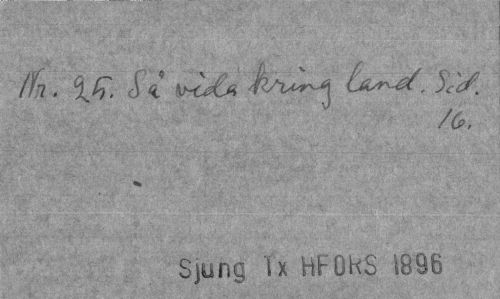 Nr. 25. Så vida kring land. Sid.
16.
Sjung Tx HFORS 1896